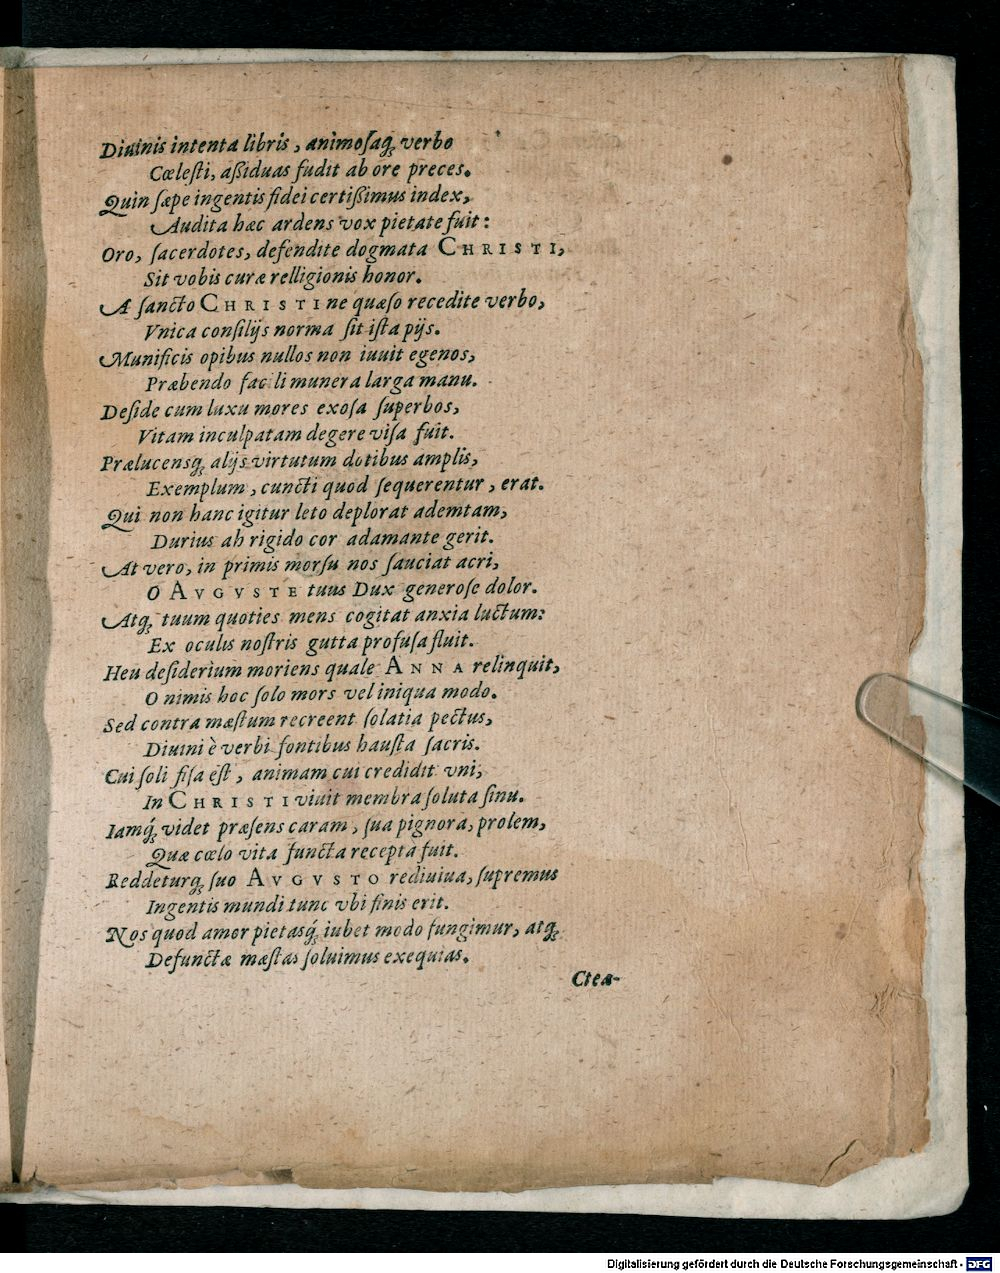 Diuinis intenta libris, animoſaq́ꝫ verbo
Cœleſti, aßiduas fudit ab ore preces.
Quin ſæpe ingentis fidei certißimus index,
Audita hæc ardens vox pietate fuit:
Oro, ſacerdotes, defendite dogmata CHRISTI,
Sit vobis curæ relligionis honor.
A ſancto CHRISTI ne quæſo recedite verbo,
Vnica conſilijs norma ſit iſta pijs.
Munificis opibus nullos non iuuit egenos,
Præbendo facili munera larga manu.
Deſide cum luxu mores exoſa ſuperbos,
Vitam inculpatam degere viſa fuit.
Prælucensqꝫ alijs virtutum dotibus amplis,
Exemplum, cuncti quod ſequerentur, erat.
Qui non hanc igitur leto deplorat ademtam,
Durius ah rigido cor adamante gerit.
At vero, in primis morſu nos ſauciat acri,
O AVGVSTE tuus Dux generoſe dolor.
Atqꝫ tuum quoties mens cogitat anxia luctum:
Ex oculis noſtris gutta profuſa fluit.
Heu deſiderium moriens quale ANNA relinquit,
O nimis hoc ſolo mors vel iniqua modo.
Sed contra mæſtum recreent ſolatia pectus,
Diuini è verbi fontibus hauſta ſacris.
Cui ſoli fiſa eſt, animam cui credidit vni,
In CHRISTI viuit membra ſoluta ſinu.
Iamq́ꝫ videt præſens caram, ſua pignora, prolem,
Quæ cœlo vita functa recepta fuit.
Reddeturqꝫ ſuo AVGVSTO rediuiua, ſupremus
Ingentis mundi tunc vbi finis erit.
Nos quod amor pietasq́ꝫ iubet modo fungimur, atqꝫ
Defunctæ mæſtas ſoluimus exequias.
Ctea-
Digitalisierung gefördert durch die Deutsche Forschungsgemeinschaft - DFG